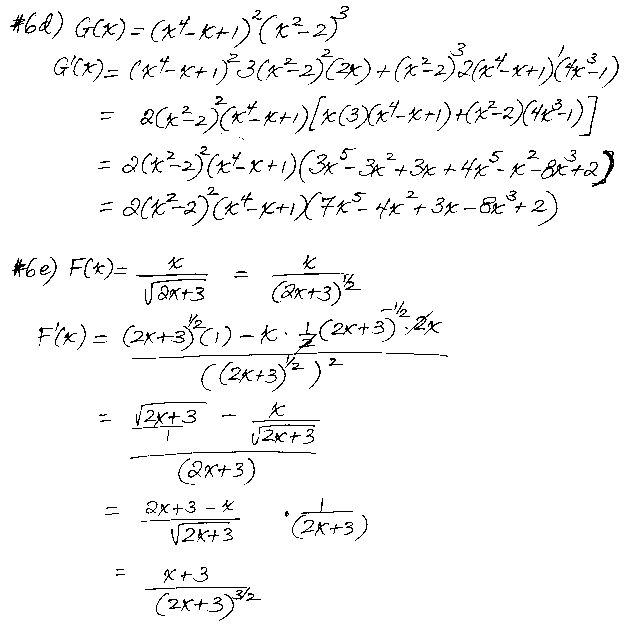 #6d) G(x) = (x⁴-x+1)²(x²-2)³
G'(x) = (x⁴-x+1)² 3(x²-2)²(2x) + (x²-2)³ 2(x⁴-x+1)¹(4x³-1)
= 2(x²-2)²(x⁴-x+1)[x(3)(x⁴-x+1)+(x²-2)(4x³-1)]
= 2(x²-2)²(x⁴-x+1)(3x⁵-3x²+3x+4x⁵-x²-8x³+2)
= 2(x²-2)²(x⁴-x+1)(7x⁵-4x²+3x-8x³+2)
#6e) F(x) = x/√(2x+3) = x/(2x+3)^(1/2)
F'(x) = ((2x+3)^(1/2)(1) - x · 1/2(2x+3)^(-1/2) · 2x)/((2x+3)^(1/2))²
= (√(2x+3)/1 - x/√(2x+3))/(2x+3)
= (2x+3-x)/√(2x+3) · 1/(2x+3)
= (x+3)/(2x+3)^(3/2)